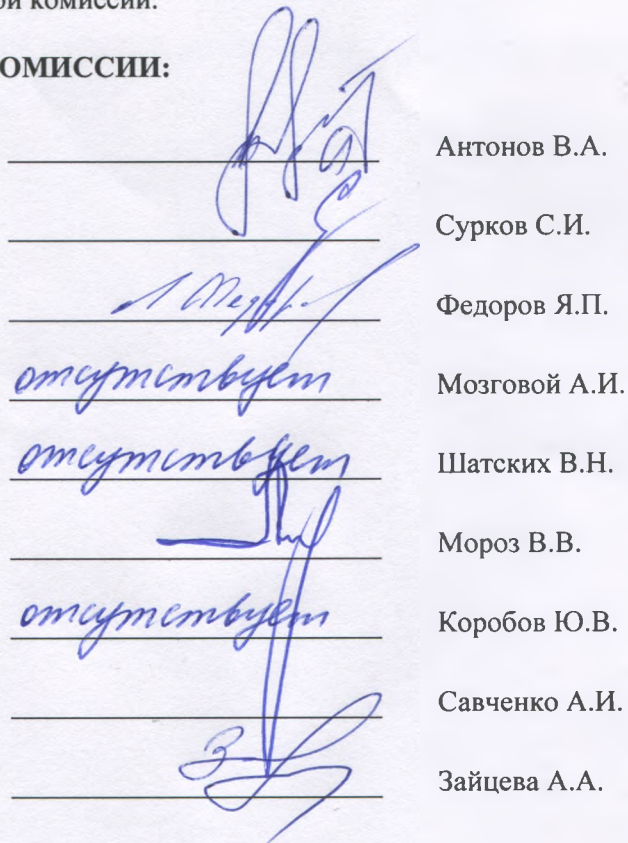 ой комиссии.
ОМИССИИ:
Антонов В.А.
Сурков С.И.
Федоров Я.П.
отсутствует Мозговой А.И.
отсутствует Шатских В.Н.
Мороз В.В.
отсутствует Коробов Ю.В.
Савченко А.И.
Зайцева А.А.